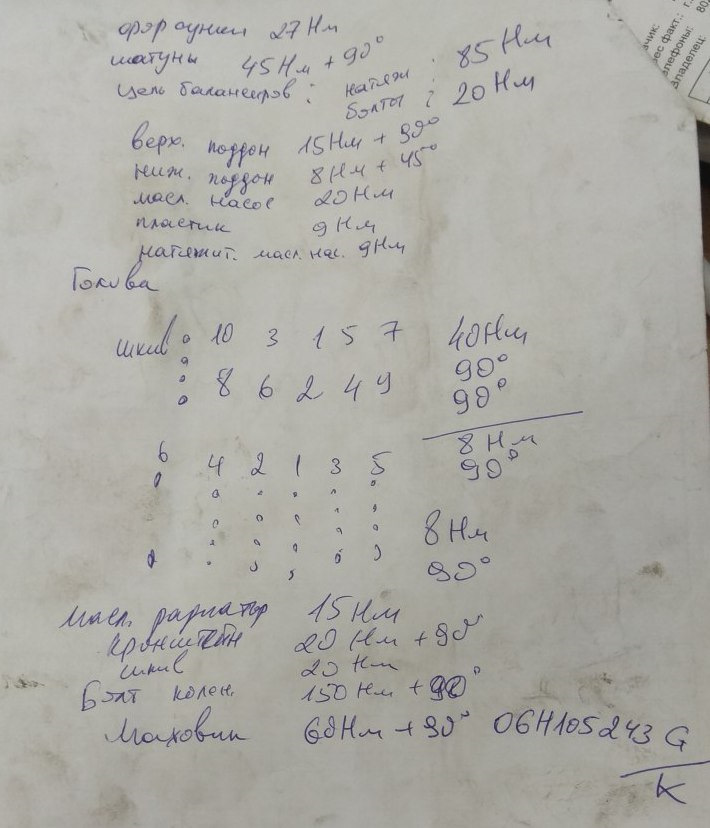 форсунки 27 Нм
шатуны 45Нм + 90°
цепь балансиров: натяж. 85 Нм
болты: 20 Нм
верх. поддон 15Нм + 90°
ниж. поддон 8Нм + 45°
масл. насос 20Нм
пластик 9Нм
натяжит. масл. нас. 9Нм
Голова
шкив 10 3 1 5 7 40Нм
90°
8 6 2 4 9 90°
8 Нм
6 4 2 1 3 5 90°
8 Нм
90°
Масл. радиатор 15Нм
Кронштейн 20 Нм + 90°
шкив 20 Нм
Болт колен. 150 Нм + 90°
Маховик 60Нм + 90° 06H105243 G
K